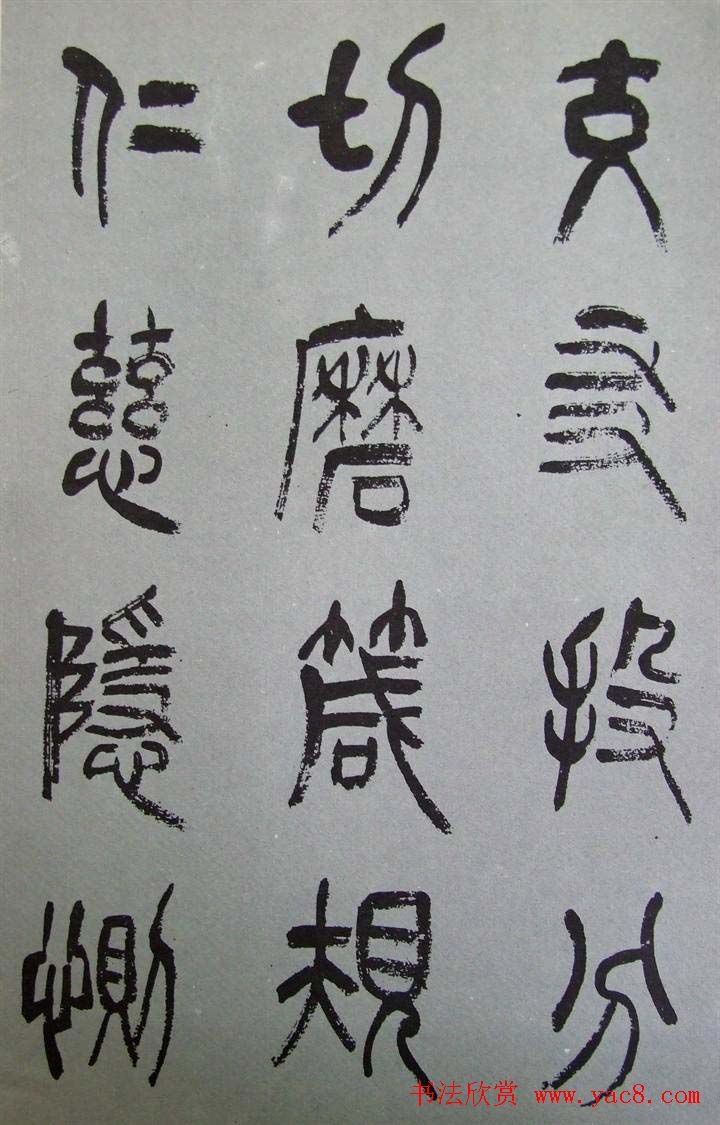 交友投分
切磨箴規
仁慈隱惻
书法欣赏 www.yac8.com